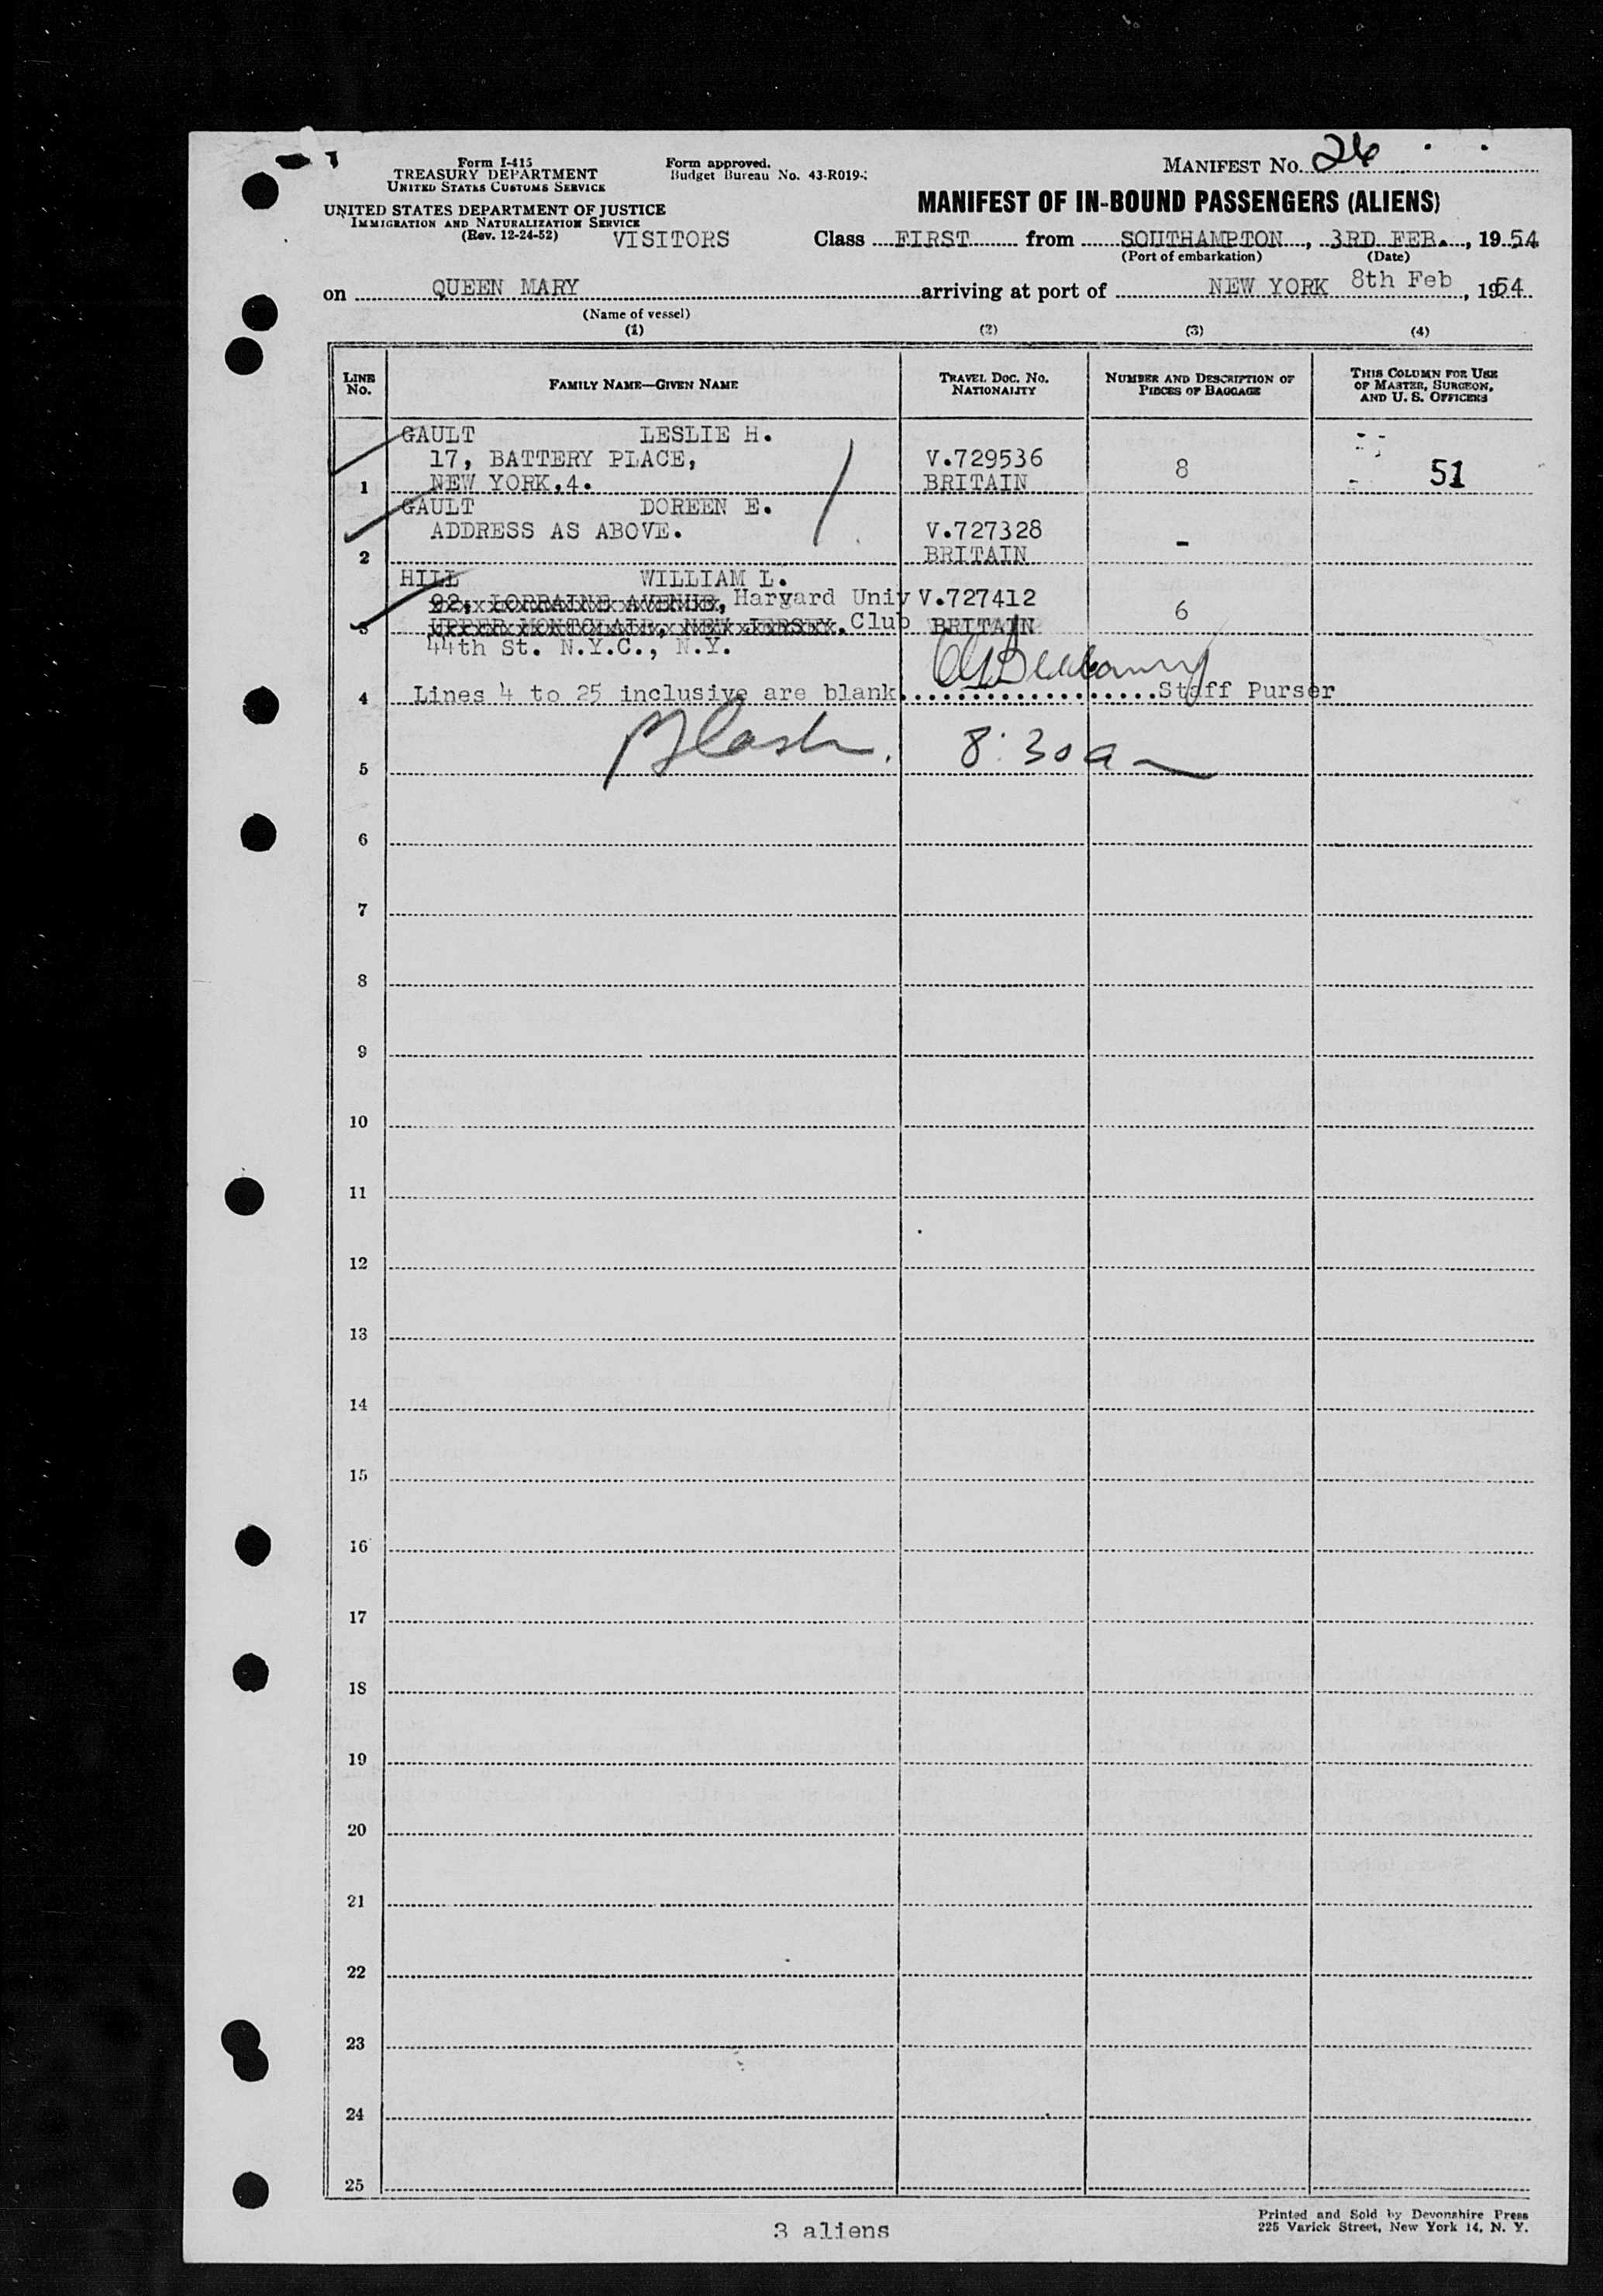 Form I-415
TREASURY DEPARTMENT
UNITED STATES CUSTOMS SERVICE
UNITED STATES DEPARTMENT OF JUSTICE
IMMIGRATION AND NATURALIZATION SERVICE
(Rev. 12-24-52)
Form approved.
Budget Bureau No. 43-R019-
MANIFEST No. 26
MANIFEST OF IN-BOUND PASSENGERS (ALIENS)
VISITORS Class FIRST from SOUTHAMPTON, 3RD FEB., 1954
(Port of embarkation) (Date)
on QUEEN MARY arriving at port of NEW YORK 8th Feb, 1954
(Name of vessel)
(1) (2) (3) (4)
LINE No. FAMILY NAME—GIVEN NAME TRAVEL DOC. NO. NATIONALITY NUMBER AND DESCRIPTION OF PIECES OF BAGGAGE THIS COLUMN FOR USE OF MASTER, SURGEON, AND U. S. OFFICERS
GAULT LESLIE H.
17, BATTERY PLACE, V.729536
1 NEW YORK,4. BRITAIN 8 51
GAULT DOREEN E.
ADDRESS AS ABOVE. V.727328
2 BRITAIN -
HILL WILLIAM L.
92, LORRAINE AVENUE, Harvard Univ V.727412 6
3 UPPER MONTCLAIR, NEW JERSEY. Club BRITAIN
44th St. N.Y.C., N.Y.
4 Lines 4 to 25 inclusive are blank....................Staff Purser
5 8:30a
6
7
8
9
10
11
12
13
14
15
16
17
18
19
20
21
22
23
24
25
3 aliens
Printed and Sold by Devonshire Press
225 Varick Street, New York 14, N. Y.